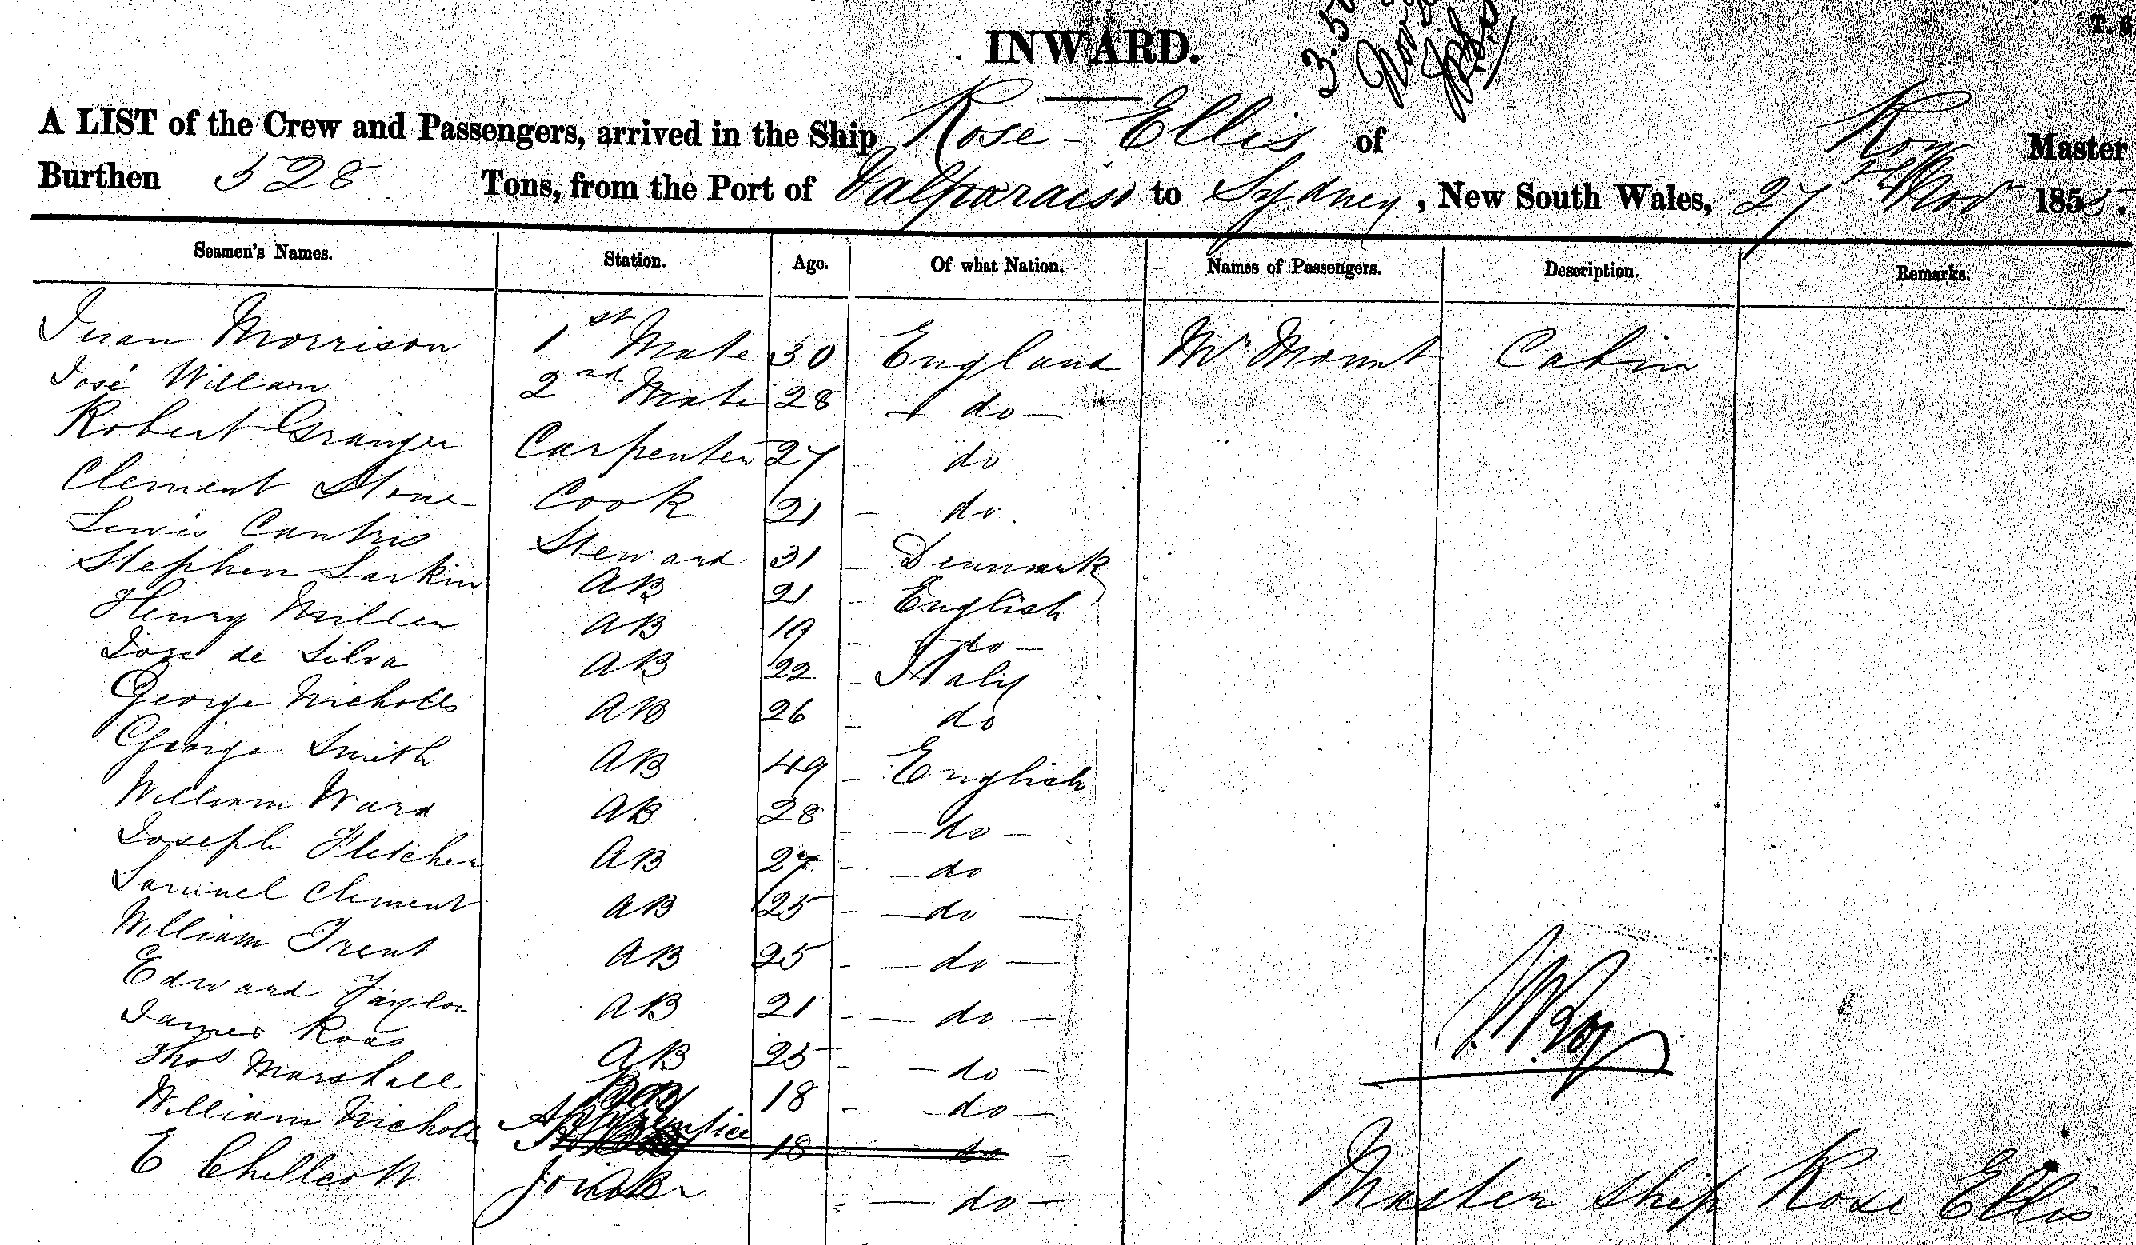 T. 6
INWARD.
3.50
A LIST of the Crew and Passengers, arrived in the Ship Rose-Ellis of Roy Master
Burthen 528 Tons, from the Port of Valparaiso to Sydney, New South Wales, 27 Nov 1855.
Seamen's Names. Station. Age. Of what Nation. Names of Passengers. Description. Remarks.
Morrison 1st Mate 30 England Mr Mount Cabin
José William 2nd Mate 28 - do -
Robert Granger Carpenter 27 do
Clement Stone Cook 21 - do.
Lewis Steward 31 Denmark
Stephen Larkin AB 21 - English
Henry Miller AB 19 - do -
Jose de Silva AB 22 - Italy
George Nicholls AB 26 - do
George Smith AB 49 - English
William Ward AB 28 - do -
Joseph Fletcher AB 27 - do
Samuel Clement AB 25 - do -
William Trent AB 25 - do -
Edward Taylor AB 21 - do -
James Ross AB 25 - do -
Thos Marshall Boy 18 - do -
William Nicholls Apprentice 18 do -
E Chellcott Joiner - do -
Roy
Master Ship Rose Ellis